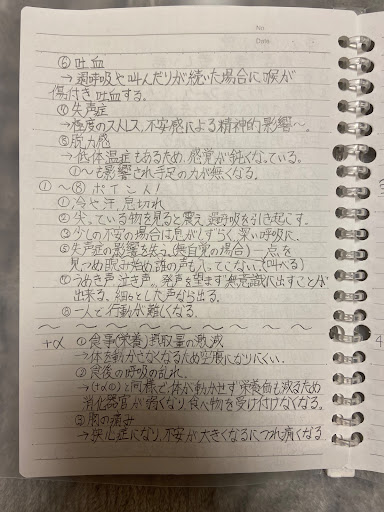 No
Date
⑥ 吐血
→過呼吸や叫んだりが続いた場合に喉が
傷付き吐血する。
⑦ 失声症
→極度のストレス、不安感による精神的影響〜。
⑧ 脱力感
→低体温症もあるため、感覚が鈍くなっている。
①〜も影響され手足の力が無くなる。
①〜⑧ ポイント!
①冷や汗、息切れ
②尖っている物を見ると震え、過呼吸を引き起こす。
③少しの不安の場合は息がしずらく、深い呼吸に。
⑤失声症の影響を失う、(無自覚の場合)一点を
見つめ睨み始め誰の声も入ってこない。(叫べる)
⑦うめき声、泣き声。発声を望まず無意識に出すことが
出来る、細々とした声なら出る。
⑧一人で行動が難しくなる。
+α ①食事(栄養)摂取量の激減
→体を動かさなくなるため空腹になりにくい。
②食後の呼吸の乱れ
→(+α①)と同様で、体が動かせず栄養価も減るため
消化器官が弱くなり、食べ物を受け付けなくなる。
③胸の痛み
→狭心症になり、不安が大きくなるにつれ痛くなる